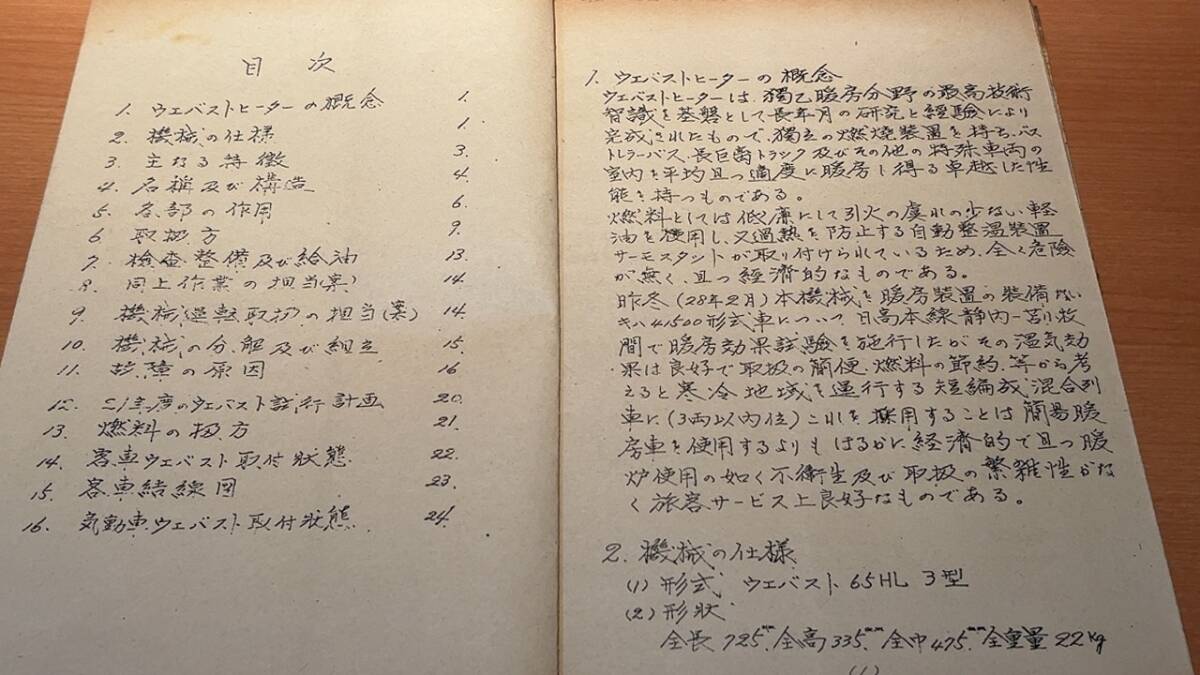 目次
1. ウエバストヒーターの概念 1.
2. 機械の仕様 1.
3. 主なる特徴 3.
4. 名稱及び構造 4.
5. 各部の作用 6.
6. 取扱方 9.
7. 検査整備及び給油 13.
8. 同上作業の担当(案) 14.
9. 機械運転取扱の担当(案) 14.
10. 機械の分解及び組立 15.
11. 故障の原因 16
12. 年度のウエバスト試行計画 20.
13. 燃料の扱方 21.
14. 客車ウエバスト取付状態 22.
15. 客車結線図 23.
16. 気動車ウエバスト取付状態 24.
1. ウェバストヒーターの概念
ウエバストヒーターは、獨乙暖房分野の最高技術
智識を基盤として長年月の研究と経験により
完成されたもので、獨立の燃焼装置を持ち、バス
トレラーバス、長巨トラック及びその他の特殊車両の
室内を平均且つ適度に暖房し得る卓越した性
能を持つものである。
燃料としては低廉にして引火の虞れの少ない軽
油を使用し、又過熱を防止する自動整温装置
サーモスタントが取り付けられているため、全く危険
が無く、且つ経済的なものである。
昨冬(28年2月)本機械を暖房装置の装備ない
キハ41500形式車について日高本線静内-苫小牧
間で暖房効果試験を施行したがその温気効
果は良好で取扱の簡便、燃料の節約、等から考
えると寒冷地域を運行する短編成混合列
車に(3両以内位)これを採用することは簡易暖
房車を使用するよりもはるかに経済的で且つ暖
炉使用の如く不衛生及び取扱の繁雑性がな
く旅客サービス上良好なものである。
2. 機械の仕様
(1) 形式 ウエバスト 65HL 3型
(2) 形状
全長 725mm 全高 335mm 全巾 475mm 全重量 22kg
(1)